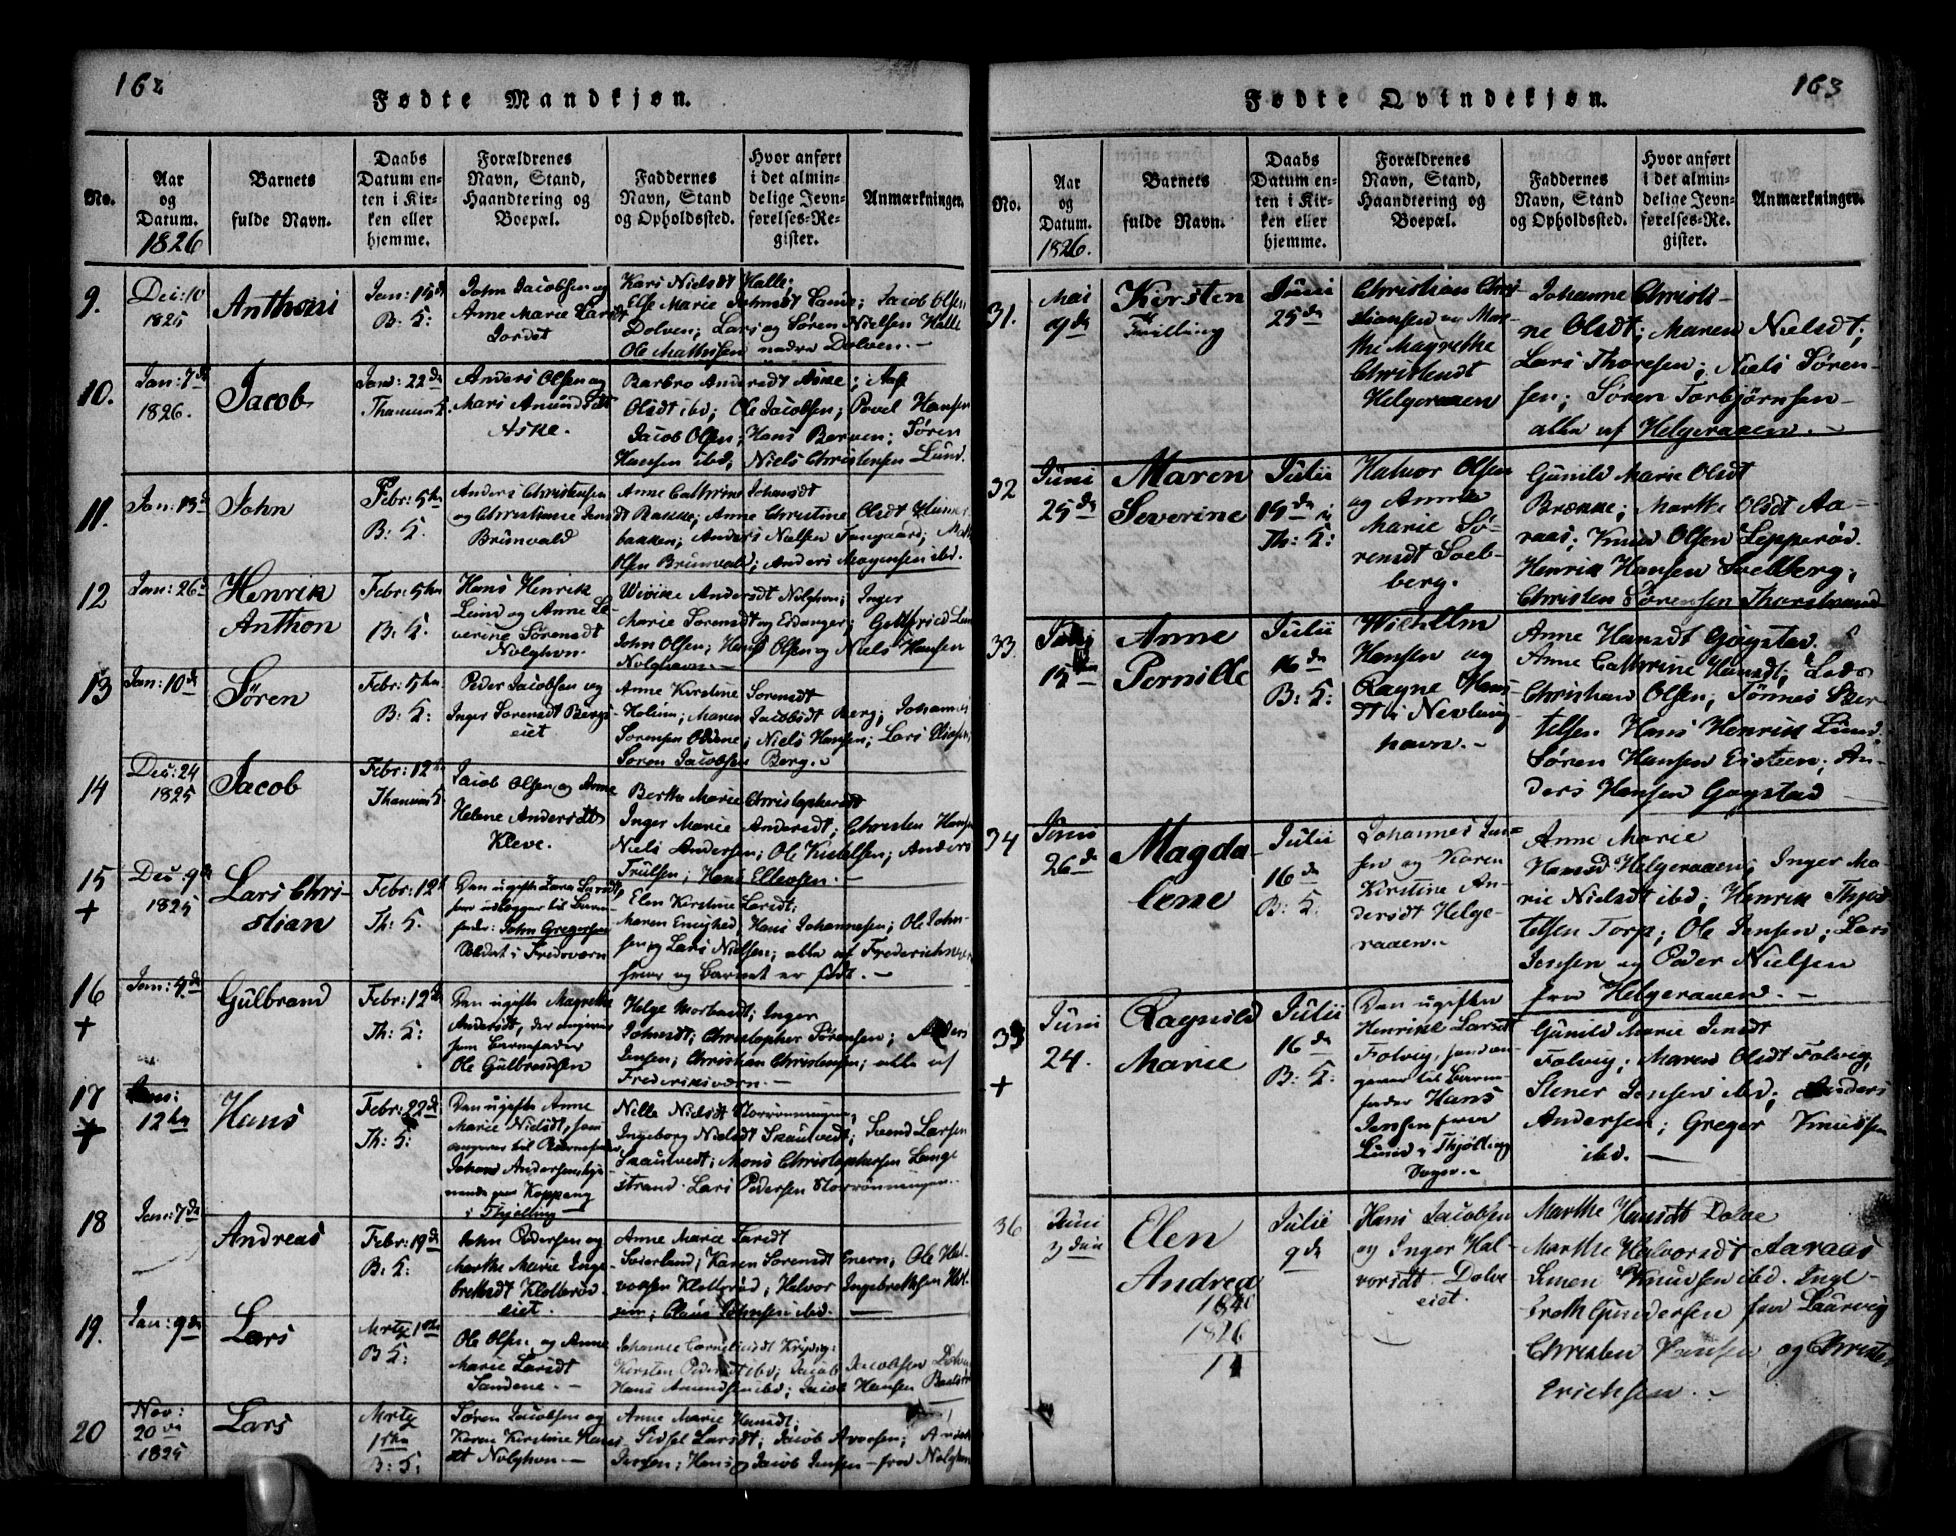 162
Fødte Mandkjøn.
No.
Aar
og
Datum.
1826
Barnets
fulde Navn.
Daabs
Datum en-
ten i Kir-
ken eller
hjemme.
Forældrenes
Navn, Stand,
Haandtering og
Boepæl.
Faddernes
Navn, Stand
og Opholdssted.
Hvor anført
i det almin-
delige Jevn-
førelses-Re-
gister.
Anmærkninger.
9.
Dec: 10
1825
Anthoni
Jan: 15de
B. K:
John Jacobsen og
Anne Marie Larsdt
Jordet
Kari Nielsdt Halle;
Else Marie Johnsdt Sande; Jacob Olsen
Dolven; Lars og Søren Nielsen Halle
Ole Mathisen nedre Dolven.
10.
Jan: 7de
1826.
Jacob
Jan: 22de
Thanum K
Anders Olsen og
Mari Amundsdt
Aske.
Barbro Andersdt Aske;
Olsdt ibd; Ole Jacobsen; Povel Hansen
Jacob Olsen; Hans Berven; Søren
Hansen ibd; Niels Christensen Lund.
11.
Jan: 13de
John
Febr: 5te
B: K:
Anders Christensen
og Christiane Jens
dt Brunvald
Anne Cathrine Johansdt
Bakke; Anne Christine Olsdt
bakken; Anders Nielsen Fangaard;
Olsen Brunvald; Anders Mogensen ibd.
12
Jan: 26de
Henrik
Anthon
Febr: 5te
B: K:
Hans Henrik
Lund og Anne Se-
verine Sørensdt
Nolghvn.
Wivike Andersdt Nolghvn; Inger
Marie Sørensdt og Eidanger; Gottfried Lund
John Olsen; Hans Olsen og Niels Hansen
Nolghavn.
13
Jan: 10de
Søren
Febr: 5te
B: K:
Peder Jacobsen og
Inger Sørensdt Bergs
eiet
Anne Kirstine Sørensdt
Holum; Maren Jacobsdt Berg; Johannes
Sørensen Odne; Niels Hansen; Lars Eliasen;
Søren Jacobsen Berg.
14
Dec: 24
1825
Jacob
Febr: 12te
Thanum K
Jacob Olsen og Anne
Helene Andersdt
Kleve.
Berthe Marie Christophersdt
Inger Marie Andersdt; Christen Hansen
Niels Andersen; Ole Kittelsen; Anders
Trulsen; Hans Ellevsen.
15
+
Dec: 9de
1825
Lars Chri-
stian
Febr: 12t
Th: K.
Den ugifte Sara Larsdt,
som udlægger til Barne-
fader: John Gregersen
Elen Kirstine Larsdt;
Maren Enighed; Hans Johannesen; Ole John-
sen og Lars Nielsen; alle af Friderichsværn
hvor og Barnet er født.
16
+
Jan: 4de
Gulbrand
Febr: 12te
Th: K:
Den ugifte Magrethe
Andersdt, der angiver
som Barnefader
Ole Gulbrandsen
Helge Morbardt; Inger
Johnsdt; Christopher Sørensen; Anders
Jensen; Christian Christensen; alle af
Frederiksværn.
17
+
Jan:
12te
Hans
Febr: 22de
Th: K:
Den ugifte Anne
Marie Nielsdt, som
angiver til Barnefader
Johan Andersen
Koppang
i Thjølling
Nille Nielsdt Storrønningen;
Ingeborg Nielsdt Skautvedt; Svend Larsen
Skautvedt; Mons Christophersen Lange
strand. Lars Pedersen Storrønningen.
18
Jan: 7de
Andreas
Febr: 19de
B: K:
John Pedersen og
Marthe Marie Inge
bretsdt Klotterød
eiet.
Anne Marie Larsdt
Seierland; Karen Sørensdt Enern; Ole Hal-
vorsen Klotterød; Halvor Ingebretsen
Claus Johnsen ibd.
19.
Jan: 9de
Lars
Mrtz 1ste
B K:
Ole Olsen og Anne
Marie Larsdt
Sandene.
Johanne Corneliusdt
Kirsten Pedersdt ibd; Jacob Jacobsen Dolven
Hans Amundsen ibd; Jacob Hansen
20
Nov:
20de
1825
Lars
Mrtz
1ste
B: K:
Søren Jacobsen og
Karen Kirstine Hans
dt Nolghvn.
Anne Marie Hansdt;
Sidsel Larsdt; Jacob Avorsen;
Iversen; Hans og Jacob Jensen fra Nolghvn
163
Fødte Qvindekjøn.
No.
Aar
og
Datum.
1826.
Barnets
fulde Navn.
Daabs
Datum en-
ten i Kir-
ken eller
hjemme.
Forældrenes
Navn, Stand,
Haandtering og
Boepæl.
Faddernes
Navn, Stand
og Opholdssted.
Hvor anført
i det almin-
delige Jevn-
førelses-Re-
gister.
Anmærkninger.
31.
Mai
9de
Kirsten
Tvilling
Juni
25de
Christian Chri-
stiansen og Mar-
the Magrethe
Christensdt
Helgeraaen
Johanne Christi-
ne Olsdt; Maren Nielsdt;
Lars Thoresen; Niels Søren-
sen; Søren Torbjørnsen
alle af Helgeraaen.
32
Juni
25de
Maren
Severine
Julii
15de i
Th: K:
Halvor Olsen
og Anne
Marie Sø-
rensdt Soel-
berg.
Gunild Marie Olsdt
Brekke; Marthe Olsdt Aa-
raas; Knud Olsen Lepperød.
Henrik Hansen Soelberg;
Christen Sørensen Thorstrand
33.
Juni
15de
Anne
Pernille
Julii
16de
B: K:
Wilhelm
Hansen og
Ragne Hans
dt i Nevlung
havn.
Anne Hansdt Gogstad.
Anne Cathrine Hansdt;
Christian Olsen; Tønnes Ber-
telsen Hans Henrik Lund;
Søren Hansen Eisteen; An-
ders Hansen Gogstad
34
Juni
26de
Magda-
lene
Julii
16de
B: K.
Johannes Jen-
sen og Karen
Kirstine An-
dersdt Helge-
raaen.
Anne Marie
Hansd Helgeraaen; Inger Ma-
rie Nielsdt ibd; Henrik Thjod-
telsen Torp; Ole Jensen; Lars
Jensen og Peder Nielsen
fra Helgeraaen.
35
+
Juni
24.
Ragnild
Marie
Julii
16de
B: K:
Den ugifte
Henrikke Larsdt
Folvig, som an-
giver til Barne-
fader Hans
Jensen fra
Lund i Thjølling
Sogn.
Gunild Marie Jensdt
Folvig; Maren Olsdt Folvig;
Stener Jensen ibd; Anders
Andersen; Greger Knudsen
ibd.
36
Juni
Elen
Andrea
1840
1826
14
Julie
9de
Hans Jacobsen
og Inger Hal-
vorsdt Dolve-
eiet.
Marthe Hansdt Dolve
Marthe Halvorsdt Aaraas
Simen Knudsen ibd. Inge-
breth Gundersen fra Laurvig
Christen Hansen og Christen
Erichsen.